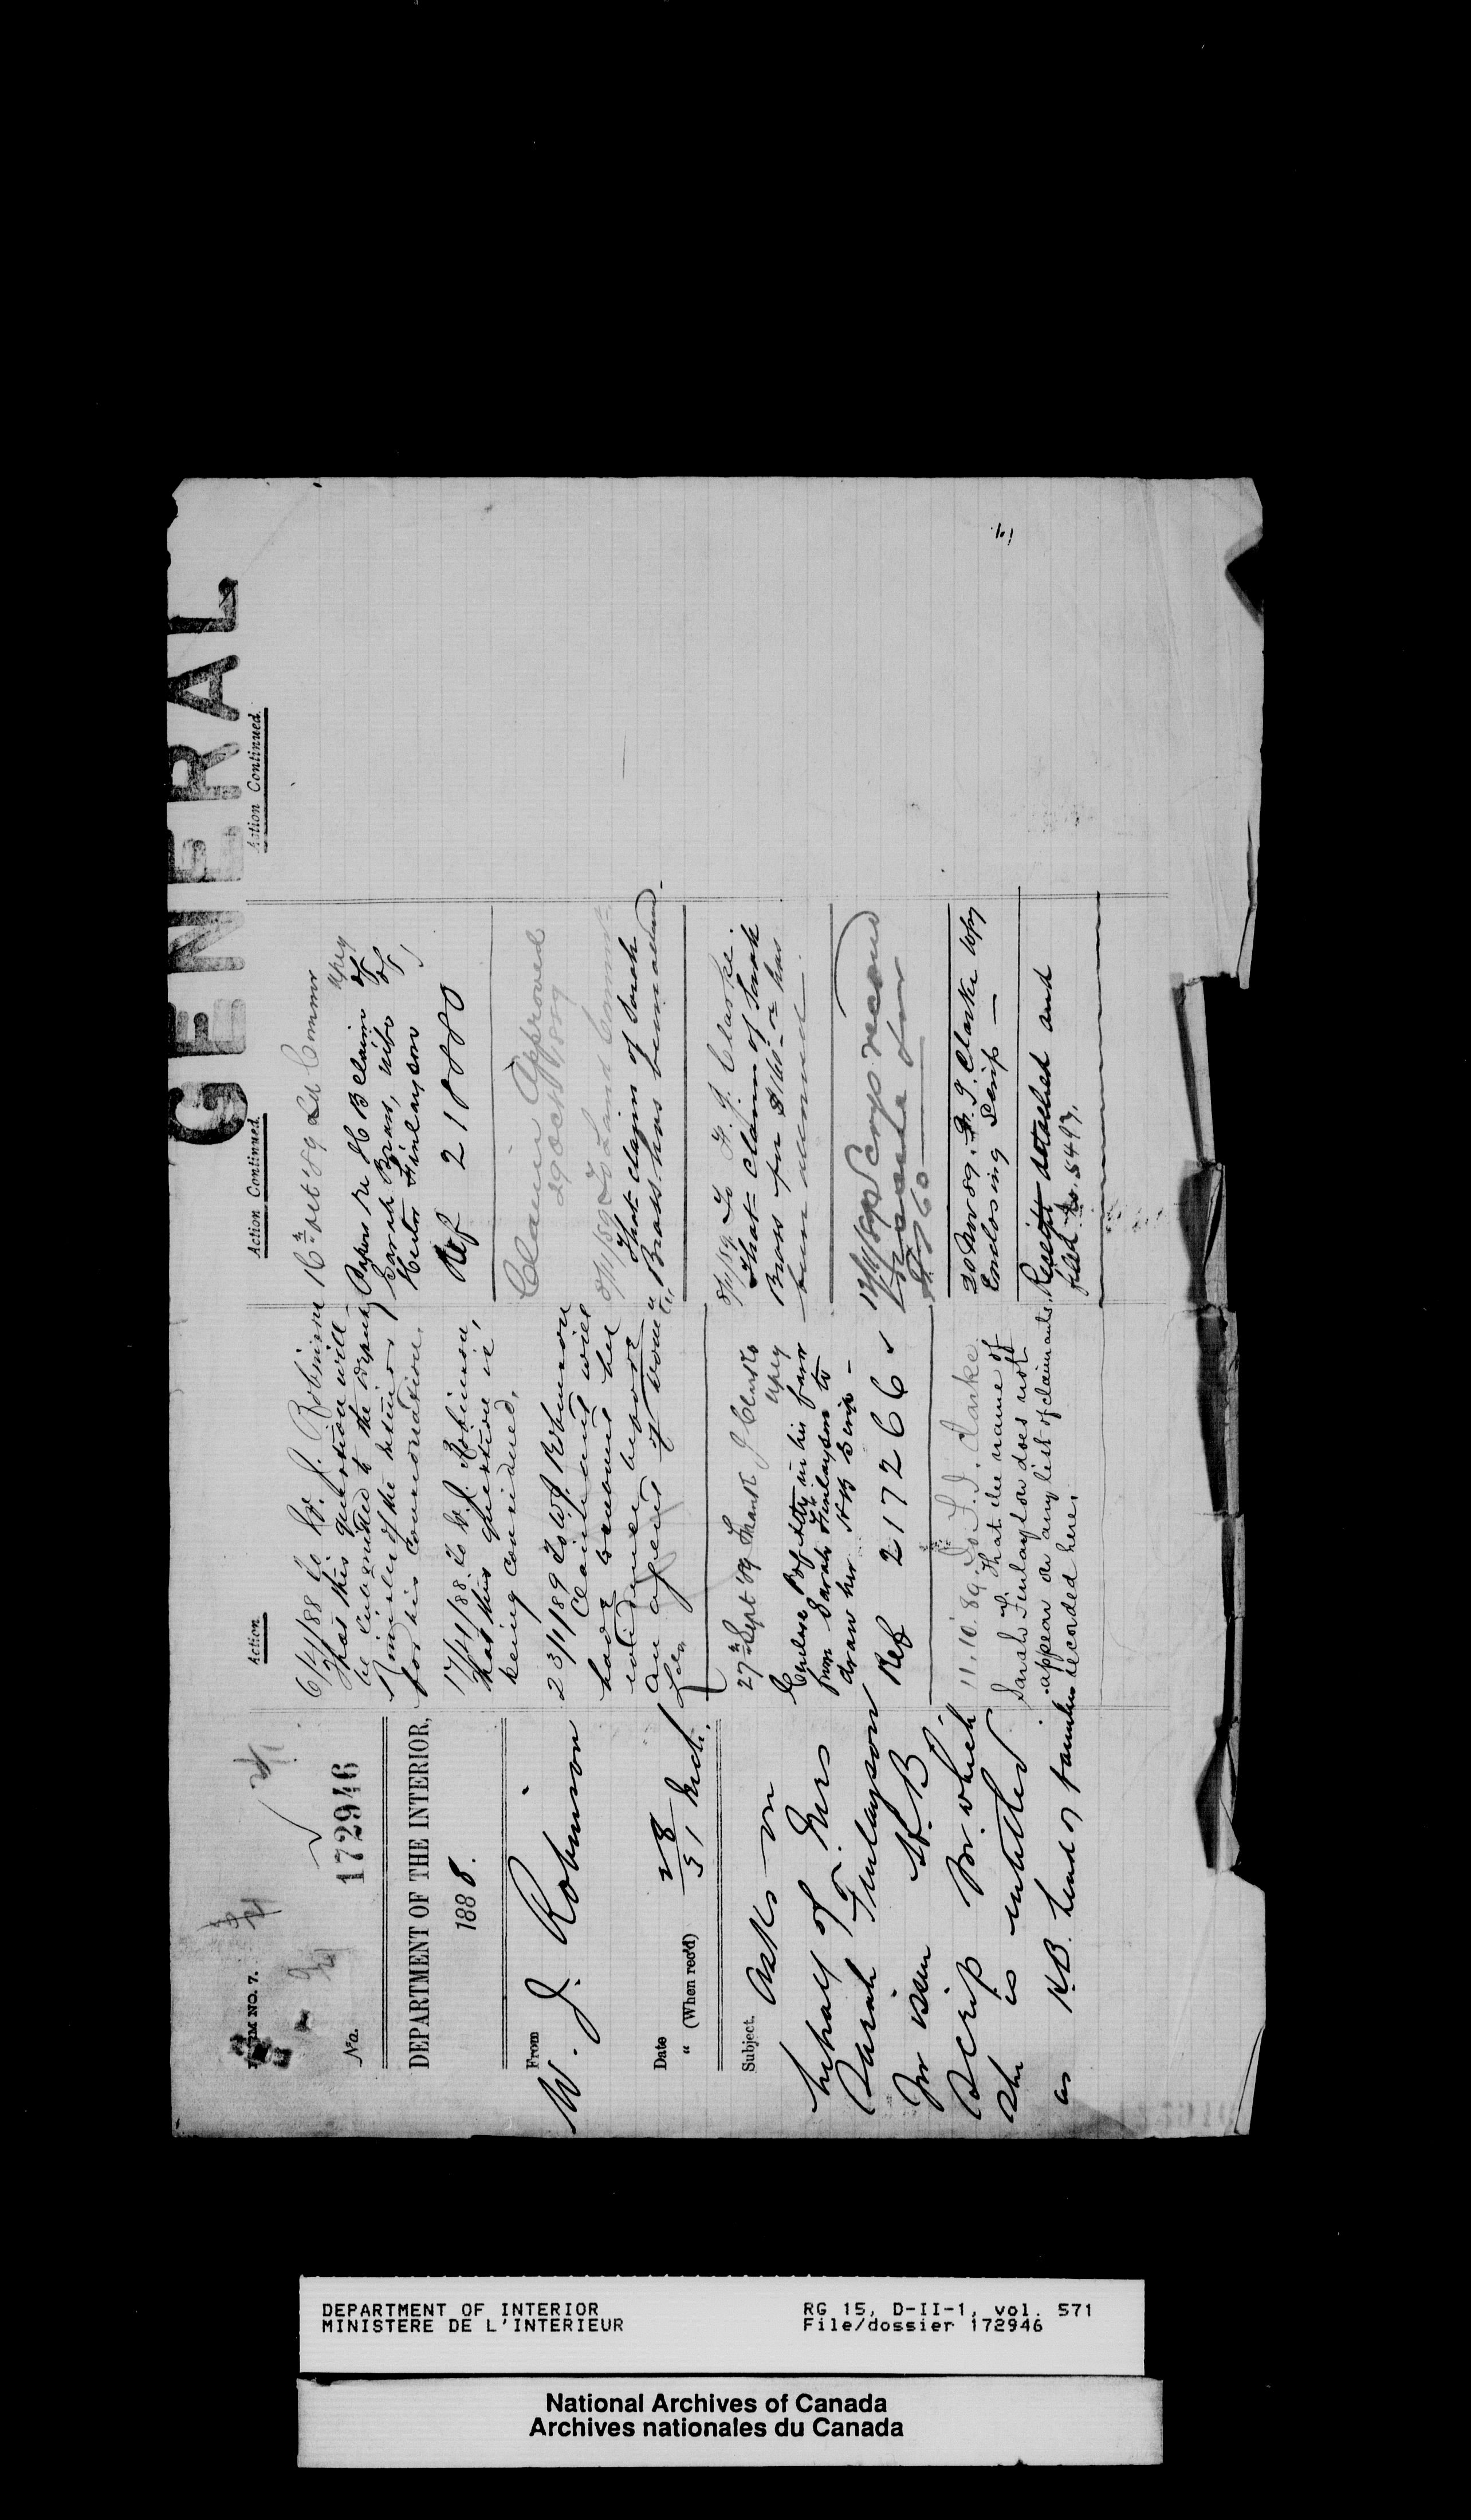 GENERAL
FORM NO. 7.
No. 172946
DEPARTMENT OF THE INTERIOR,
1888.
From
W. J. Robinson
Date 28
" (When rec'd) 31 Mch.
Subject. Asks on
behalf of Mrs
Sarah Finlayson
for issue H.B.
Scrip for which
she is entitled
as H.B. head of families
Action
6/4/88 To W. J. Robinson
That this question will
be submitted to the Deputy
Minister of the Interior
for his consideration.
17/4/88. To W. J. Robinson,
that this question is
being considered.
23/1/89 To W J Robinson
Claimant will
have
evidence before
an agent
27th Sept '89 Frank J Clarke
Encloses P of Atty in his favor
from Sarah Finlayson to
draw her H B Scrip -
Ref 217266
11.10.89. To F. J. Clarke
That the name of
Sarah Finlayson does not
appear on any list of claimants
recorded here.
Action Continued
16th Oct '89 Ld Commr
Papers re H B Claim of
Sarah Brass, wife of
Hector Finlayson
Ref 218880
Claim Approved
29 Oct 1889
8/11/89 To Land Commr
That claim of Sarah
Brass has been allowed.
8/11/89 To F. J. Clarke.
That claim of Sarah
Brass for $160 - has
been allowed.
12/11/89 Scrip
for
$160
20 Nov 89. F. J. Clarke
Enclosing Scrip -
Receipt detached and
filed 5497.
Action Continued
DEPARTMENT OF INTERIOR
MINISTERE DE L'INTERIEUR
RG 15, D-II-1, vol. 571
File/dossier 172946
National Archives of Canada
Archives nationales du Canada